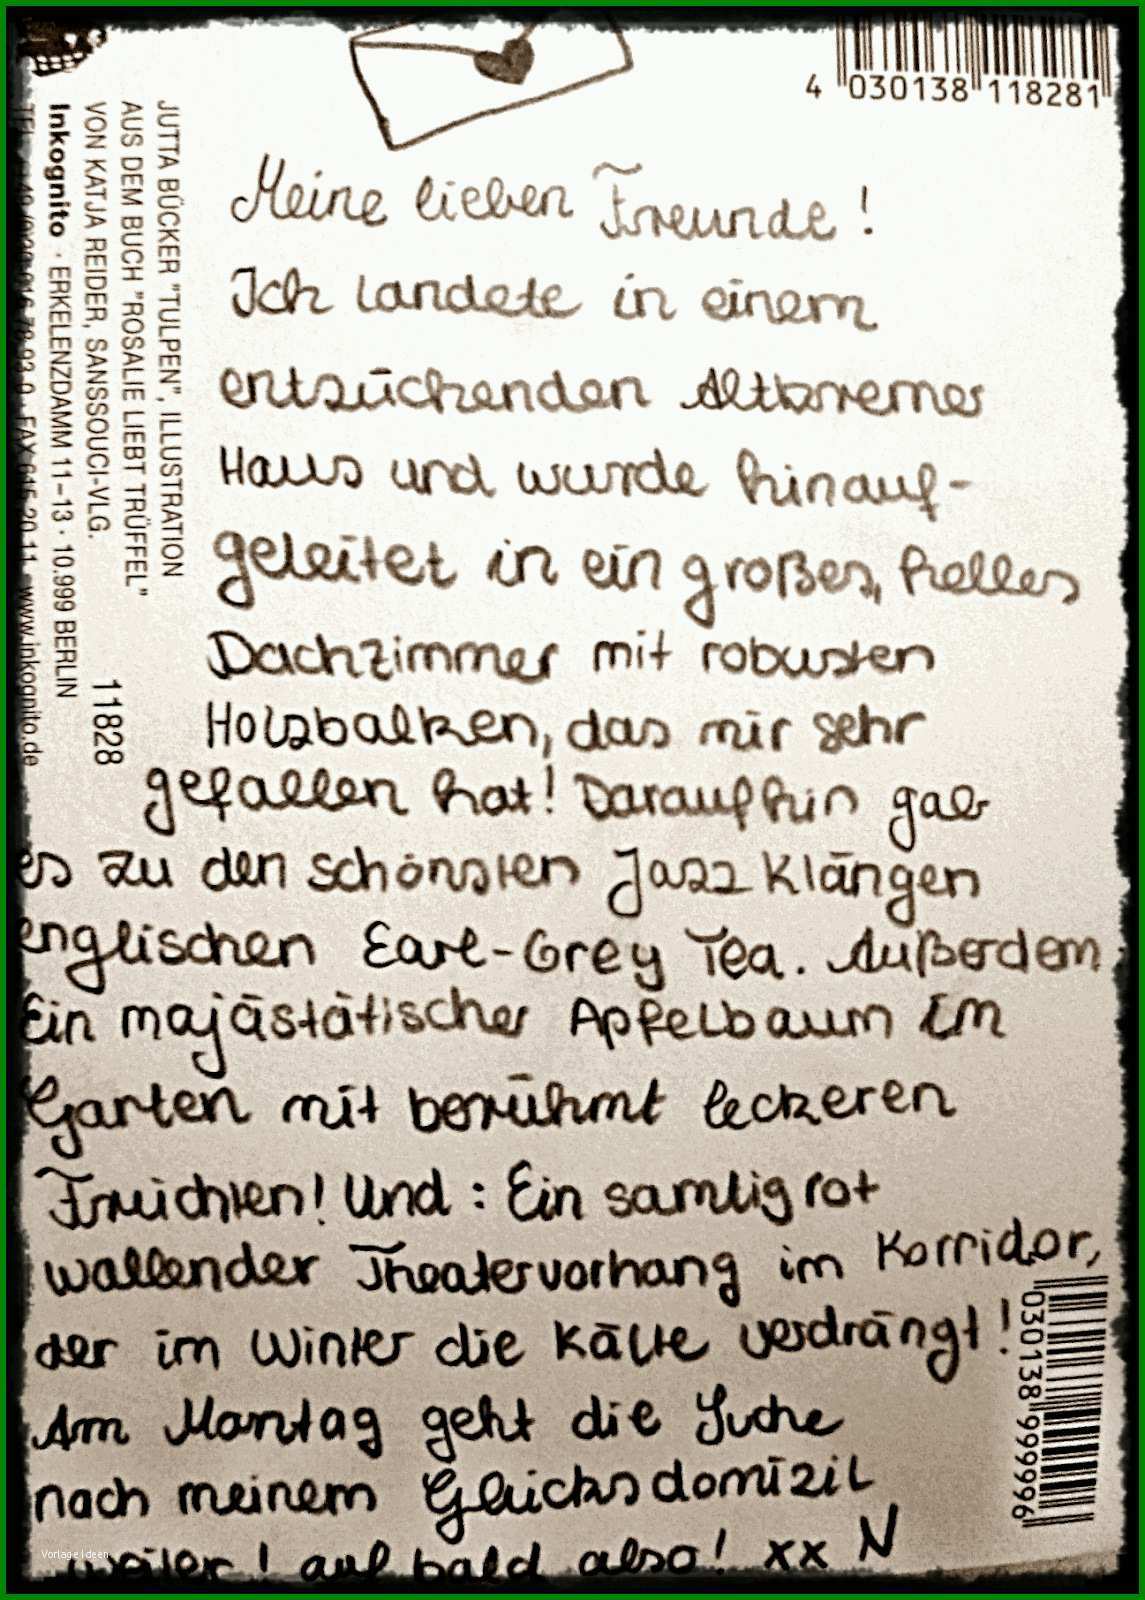 4 030138 118281
JUTTA BÜCKER "TULPEN", ILLUSTRATION
AUS DEM BUCH "ROSALIE LIEBT TRÜFFEL"
VON KATJA REIDER, SANSSOUCI-VLG.
Inkognito · ERKELENZDAMM 11–13 · 10.999 BERLIN
FAX 615 20 11 www.inkognito.de
11828
Meine lieben Freunde!
Ich landete in einem
entzückenden Altbremer
Haus und wurde hinauf-
geleitet in ein großes, helles
Dachzimmer mit robusten
Holzbalken, das mir sehr
gefallen hat! Daraufhin gab
es zu den schönsten Jazz Klängen
englischen Earl-Grey Tea. Außerdem
Ein majästätischer Apfelbaum im
Garten mit berühmt leckeren
Früchten! Und: Ein samtig rot
wallender Theatervorhang im Korridor,
der im Winter die Kälte verdrängt!
Am Montag geht die Suche
nach meinem Glücksdomizil
weiter! auf bald also! xx N
030138 999996
Vorlage Ideen